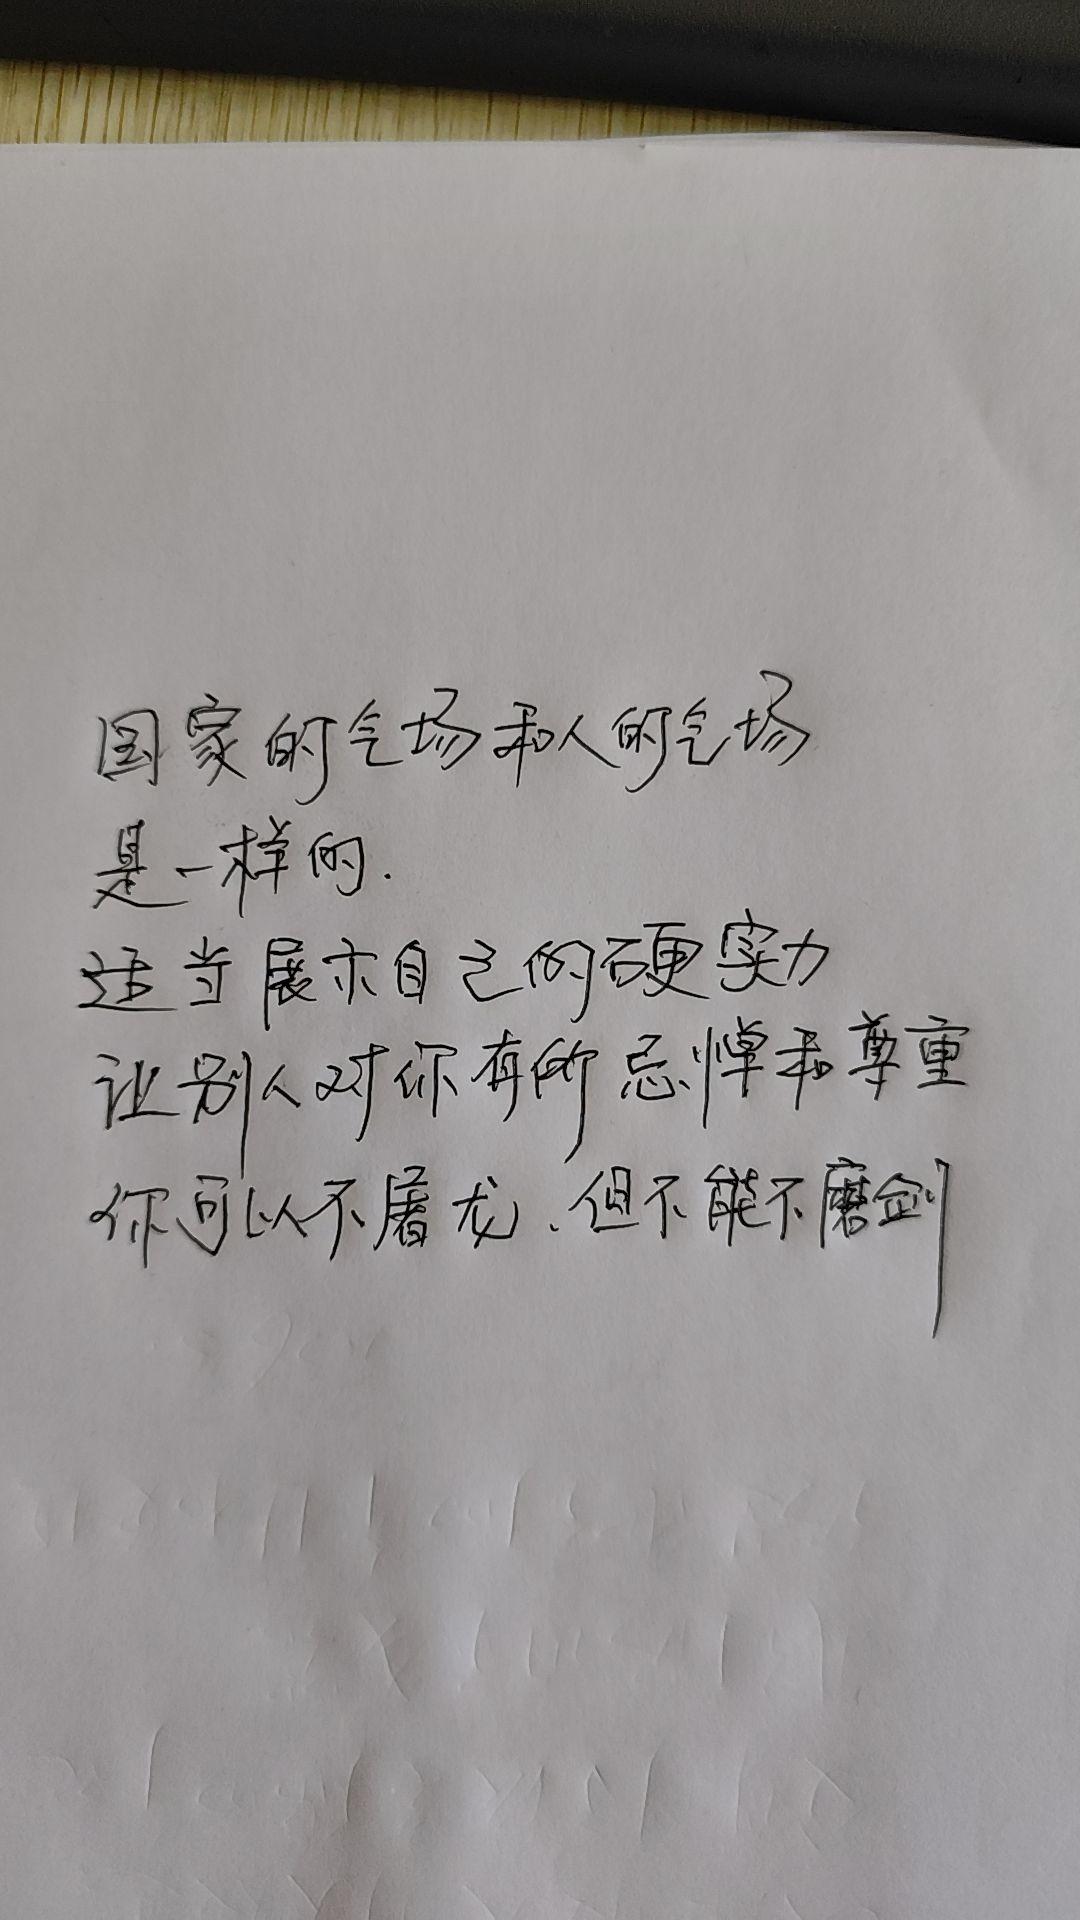 国家的气场和人的气场
是一样的.
适当展示自己的硬实力
让别人对你有所忌惮和尊重
你可以不屠龙、但不能不磨剑